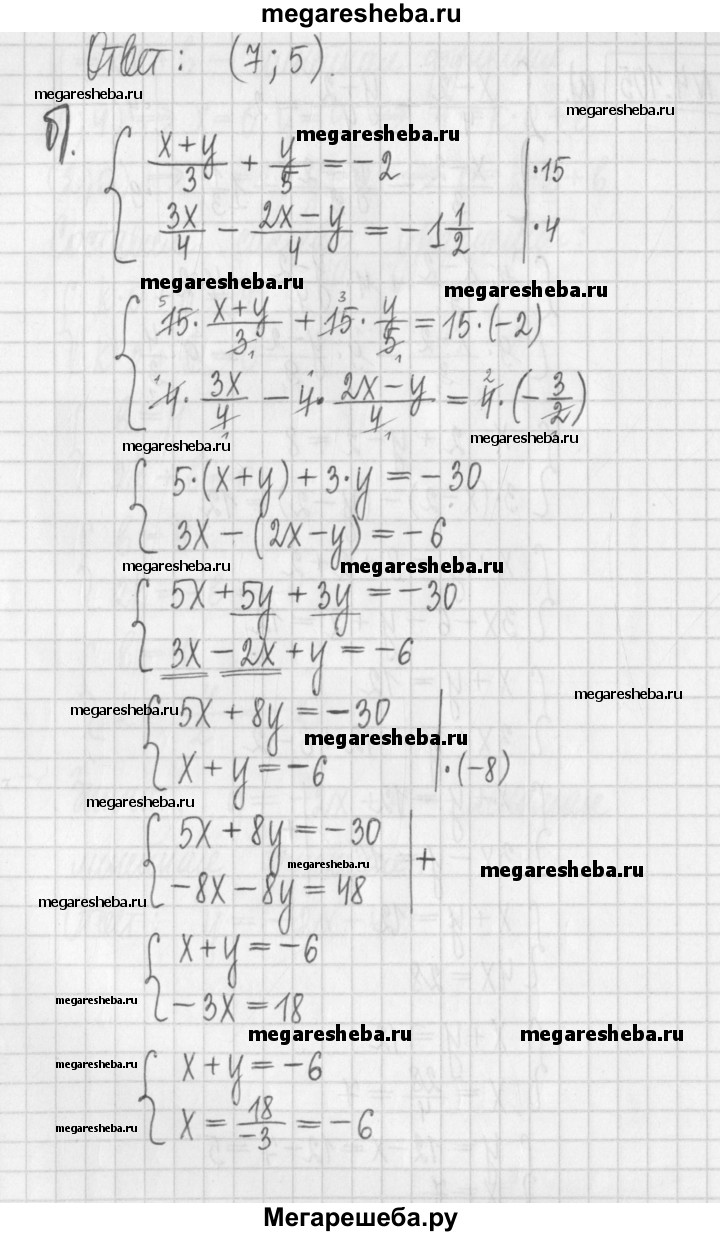 megaresheba.ru
Ответ: (7; 5).
megaresheba.ru
megaresheba.ru
б). { (x+y)/3 + y/5 = -2 | ·15
megaresheba.ru
3x/4 - (2x-y)/4 = -1 1/2 | ·4
megaresheba.ru
megaresheba.ru
{ 15· (x+y)/3 + 15· y/5 = 15·(-2)
4· 3x/4 - 4· (2x-y)/4 = 4·(-3/2)
megaresheba.ru
megaresheba.ru
{ 5·(x+y)+3·y = -30
3x-(2x-y) = -6
megaresheba.ru
megaresheba.ru
{ 5x+5y+3y = -30
3x-2x+y = -6
megaresheba.ru
megaresheba.ru
{ 5x+8y = -30
megaresheba.ru
x+y = -6 | ·(-8)
megaresheba.ru
{ 5x+8y = -30 | +
megaresheba.ru
megaresheba.ru
-8x-8y = 48
megaresheba.ru
{ x+y = -6
megaresheba.ru
-3x = 18
megaresheba.ru
megaresheba.ru
megaresheba.ru
{ x+y = -6
megaresheba.ru
x = 18/-3 = -6
Мегарешеба.ру